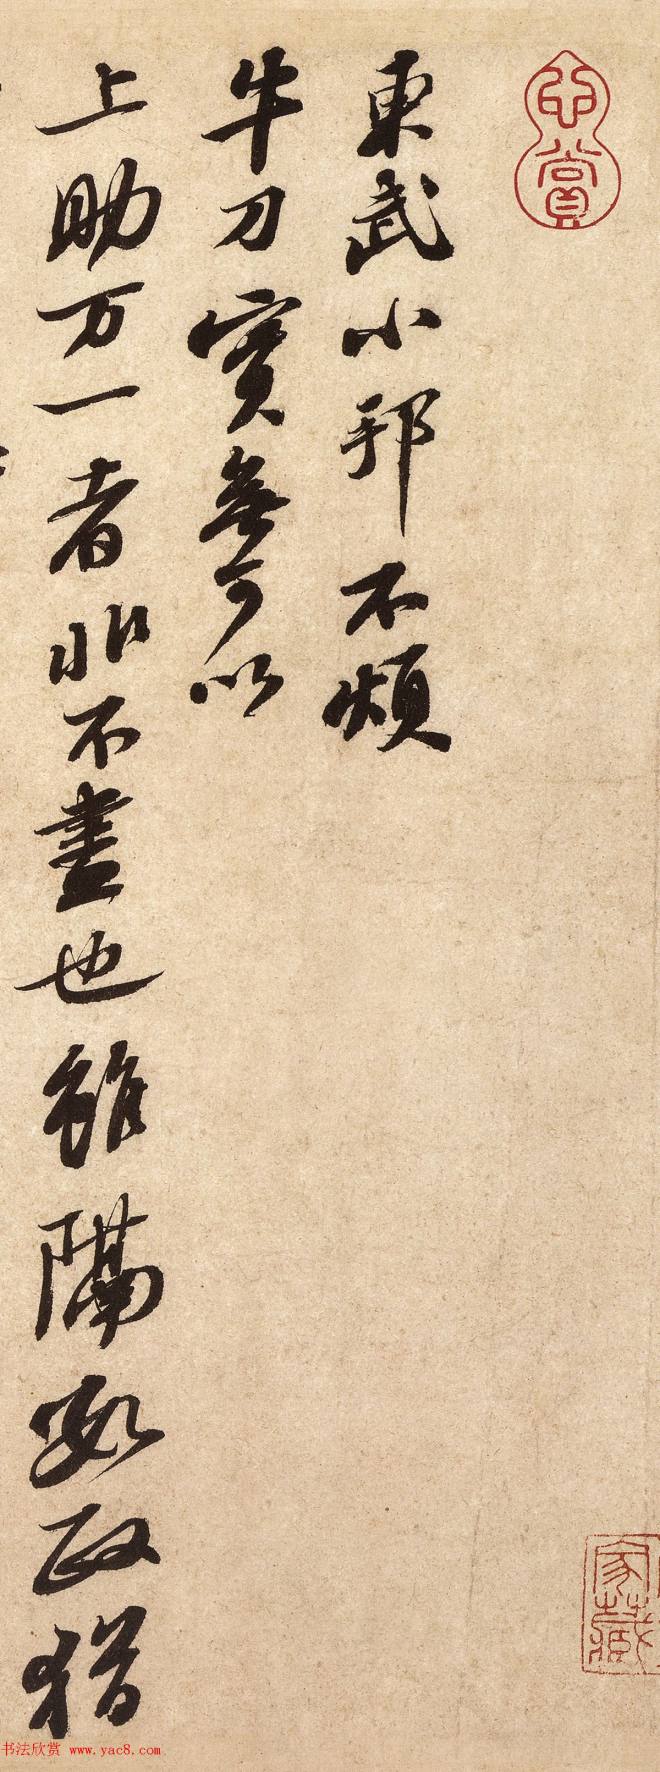 心賞
東武小邦不煩
牛刀實無可以
上助万一者非不盡也雖隔數政猶
家藏
书法欣赏 www.yac8.com